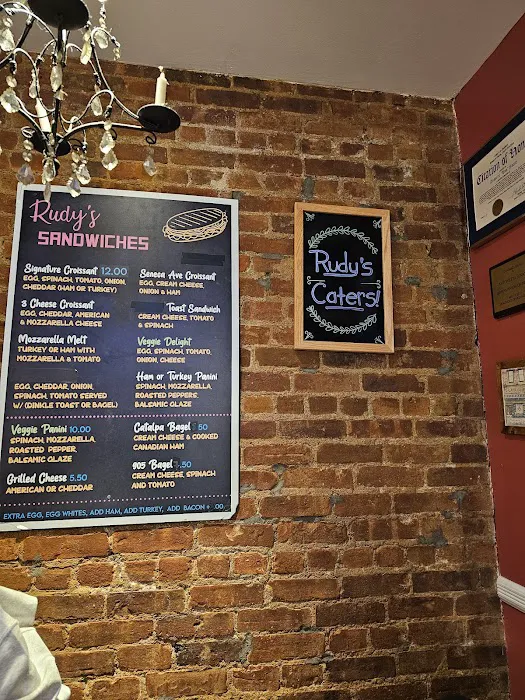 Rudy's
SANDWICHES
Signature Croissant 12.00
EGG, SPINACH, TOMATO, ONION,
CHEDDAR (HAM OR TURKEY)
3 Cheese Croissant
EGG, CHEDDAR, AMERICAN
& MOZZARELLA CHEESE
Mozzarella Melt
TURKEY OR HAM WITH
MOZZARELLA & TOMATO
EGG, CHEDDAR, ONION,
SPINACH, TOMATO SERVED
W/ (DINKLE TOAST OR BAGEL)
Veggie Panini 10.00
SPINACH, MOZZARELLA,
ROASTED PEPPER,
BALSAMIC GLAZE
Grilled Cheese 5.50
AMERICAN OR CHEDDAR
Seneca Ave Croissant
EGG, CREAM CHEESE,
ONION & HAM
Toast Sandwich
CREAM CHEESE, TOMATO
& SPINACH
Veggie Delight
EGG, SPINACH, TOMATO,
ONION, CHEESE
Ham or Turkey Panini
SPINACH, MOZZARELLA,
ROASTED PEPPERS,
BALSAMIC GLAZE
Catalpa Bagel 50
CREAM CHEESE & COOKED
CANADIAN HAM
905 Bagel .50
CREAM CHEESE, SPINACH
AND TOMATO
EXTRA EGG, EGG WHITES, ADD HAM, ADD TURKEY, ADD BACON + .00
Rudy's
Caters!